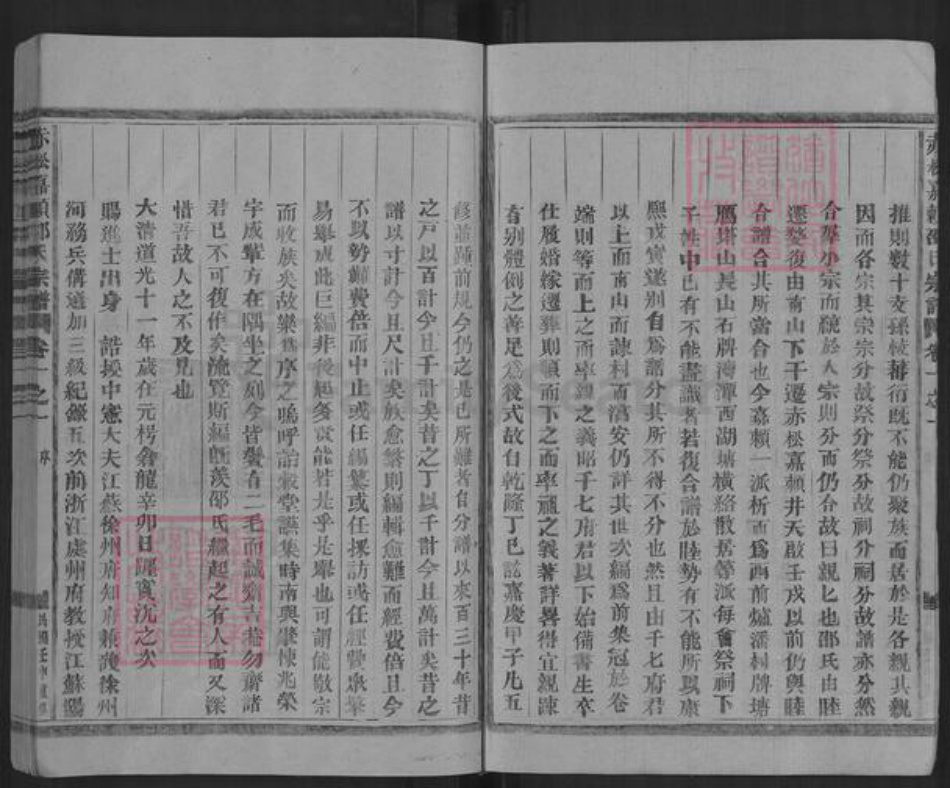 赤松嘉賴邵氏宗譜 卷一之一
推則數十支孫枝蕃衍既不能仍聚族而居於是各親其親
因而各宗其宗宗分故祭分祭分故祠分祠分故譜亦分然
合羣小宗而統於大宗則分而仍合故曰親親也邵氏由睦
遷婺復由南山下干遷赤松嘉賴井天啟壬戌以前仍與睦
合譜合其所當合也今嘉賴一派析而爲西前爐潘村牌塘
山長山石牌灣潭西湖塘橫路散居等派每會祭祠下
子姓中已有不能盡識者若復合譜於睦勢有不能所以康
熙戊寅遂別自爲譜分其所不得不分也然且由千七府君
以上而南山而諫村而淯安仍詳其世次編爲前集冠於卷
端則等而上之而率親之義昭千七府君以下始備書生卒
仕履婚嫁遷葬則順而下之而率祖之義著詳畧得宜親疎
有別體例之善足爲後式故自乾隆丁巳訖嘉慶甲子凡五
修並踵前規今仍之是已所難者自分譜以來百三十年昔
之戶以百計今且千計矣昔之丁以千計今且萬計矣昔之
譜以寸計今且尺計矣族愈繁則編輯愈難而經費倍且今
不以勢難費倍而中止或任編纂或任採訪或任經費眾擎
易舉成此巨編非後起多賢能若是乎是舉也可謂能敬宗
而收族矣故樂爲序之嗚呼詒穀堂讌集時南與肇悚兆榮
字成輩方在隅坐之列今皆鬢有二毛而誠齋吉菴勿齋諸
君已不可復作矣流覽斯編旣羡邵氏繼起之有人而又深
惜吾故人之不及見也
大清道光十一年歲在元枵龠龍辛卯日躔實沈之次
賜進士出身 誥授中憲大夫江蘇徐州府知府兼護徐州
河務兵備道加三級紀錄五次前浙江處州府教授江蘇陽
赤松嘉賴邵氏宗譜 卷一之一 序
民國壬申重修